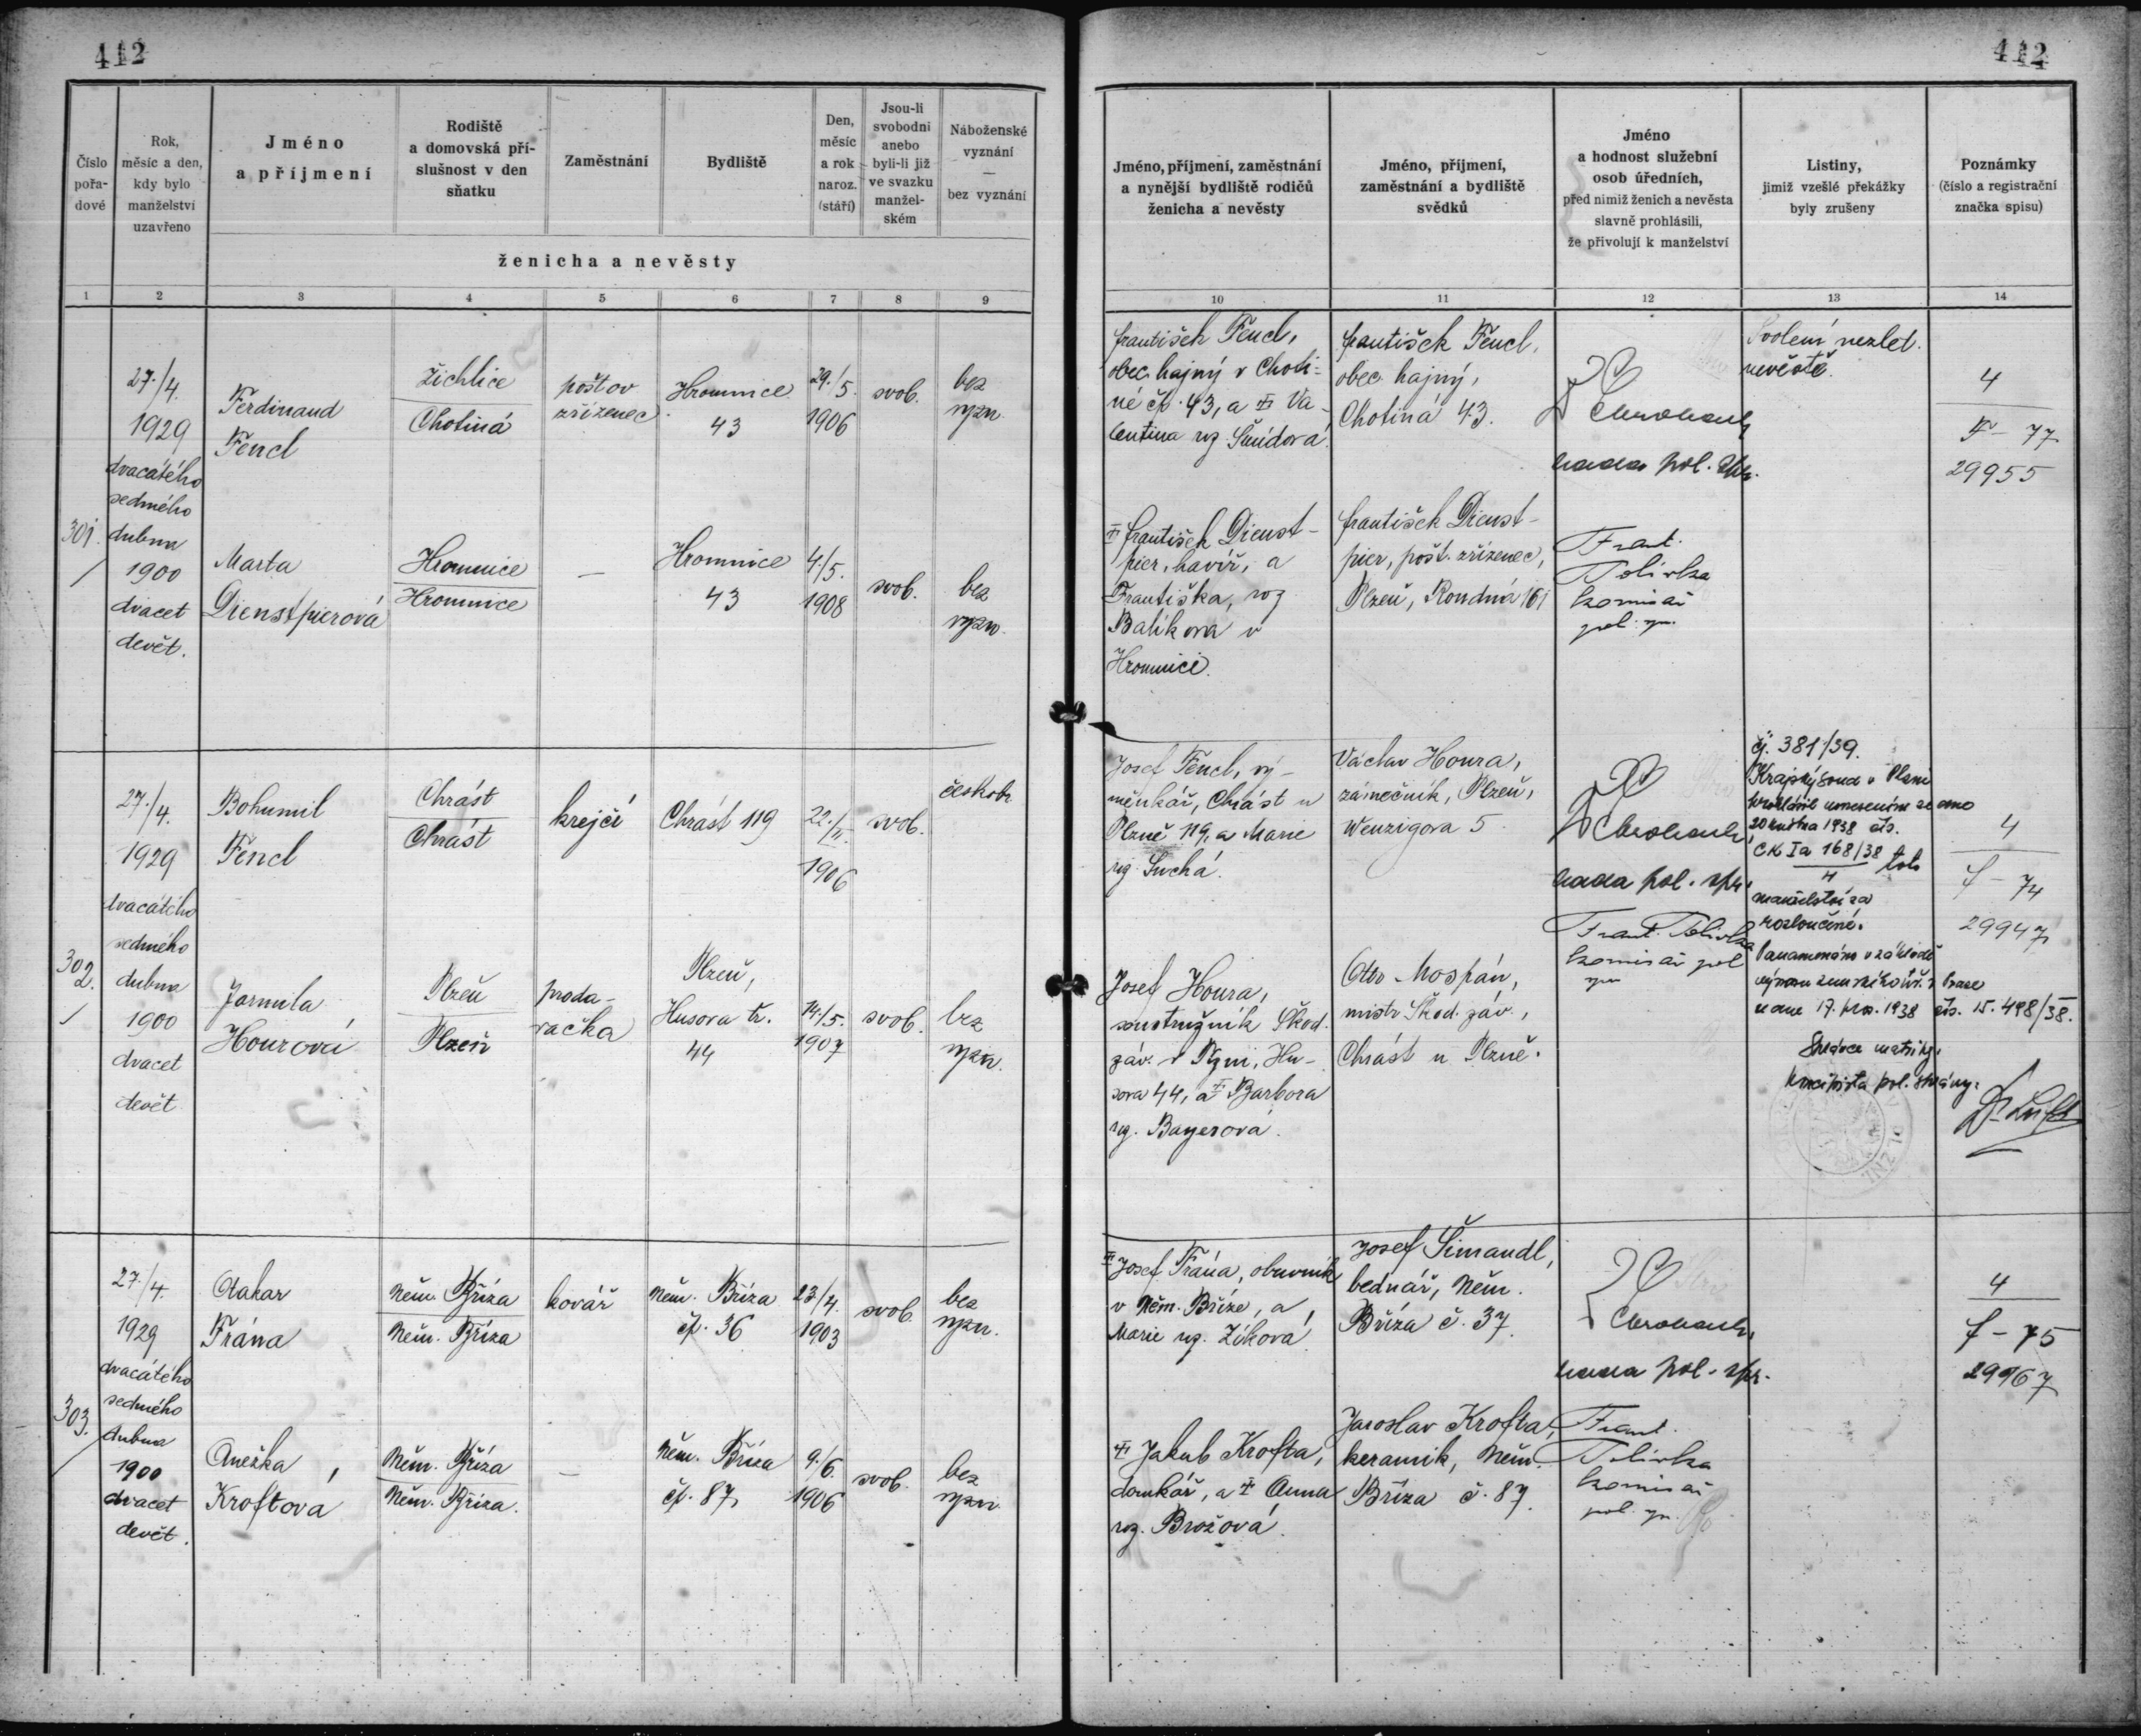 412
412
Číslo pořa-dové
Rok, měsíc a den, kdy bylo manželství uzavřeno
Jméno a příjmení
Rodiště a domovská pří-slušnost v den sňatku
Zaměstnání
Bydliště
Den, měsíc a rok naroz. (stáří)
Jsou-li svobodni anebo byli-li již ve svazku manžel-ském
Náboženské vyznání — bez vyznání
ženicha a nevěsty
Jméno, příjmení, zaměstnání a nynější bydliště rodičů ženicha a nevěsty
Jméno, příjmení, zaměstnání a bydliště svědků
Jméno a hodnost služební osob úředních, před nimiž ženich a nevěsta slavně prohlásili, že přivolují k manželství
Listiny, jimiž vzešlé překážky byly zrušeny
Poznámky (číslo a registrační značka spisu)
1 2 3 4 5 6 7 8 9 10 11 12 13 14
301.
27./4.
1929
dvacátého
sedmého
dubna
1900
dvacet
devět.
Ferdinand
Fencl
Žichlice
Chotiná
poštov
zřízenec
Hromnice
43
29./5.
1906
svob.
bez
vyzn.
Marta
Dienstpierová
Hromnice
Hromnice
—
Hromnice
43
4./5.
1908
svob.
bez
vyzn.
František Fencl,
obec. hajný v Choti-
né čp. 43, a Va-
lentina roz. Šmídová.
František Dienst-
pier, havíř, a
Františka, roz
Balíková v
Hromnici.
František Fencl,
obec. hajný,
Chotiná 43.
František Dienst-
pier, pošt. zřízenec,
Plzeň, Rondná 161
rada pol. spr.
Frant.
Polívka
komisař
pol. spr.
Svolení nezlet.
nevěstě.
4
F - 77
29955
302.
27./4.
1929
dvacátého
sedmého
dubna
1900
dvacet
devět
Bohumil
Fencl
Chrást
Chrást
krejčí
Chrást 119
22./II.
1906
svob.
českobr.
Jarmila
Hourová
Plzeň
Plzeň
proda-
vačka
Plzeň,
Husova tř.
44
14./5.
1907
svob.
bez
vyzn.
Josef Fencl, vý-
měnkář, Chrást u
Plzně 119, a Marie
roz. Suchá.
Josef Houra,
soustružník Škod.
záv. v Plzni, Hu-
sova 44, a Barbora
roz. Bayerová.
Václav Houra,
zámečník, Plzeň,
Wenzigova 5
Otto Mospán,
mistr Škod. záv.,
Chrást u Plzně.
rada pol. spr.
Frant. Polívka
komisař pol
spr
čj. 381/39.
Krajský soud v Plzni
prohlásil usnesením ze dne
20 května 1938 čís.
CK Ia 168/38 toto
4
manželství za
rozloučené.
Zaznamenáno v základě
výnosu zemského úř. v Praze
ze dne 17. pros. 1938 čís. 15.498/38.
Správce matriky:
koncipista pol. správy:
4
f - 74
29947
303.
27./4.
1929
dvacátého
sedmého
dubna
1900
dvacet
devět.
Otakar
Frána
Něm. Bříza
Něm. Bříza
kovář
Něm. Bříza
čp. 36
23/4.
1903
svob.
bez
vyzn.
Anežka
Kroftová
Něm. Bříza
Něm. Bříza.
—
Něm. Bříza
čp. 87
9./6.
1906
svob.
bez
vyzn.
Josef Frána, obuvník
v Něm. Bříze, a
Marie roz. Zíková
Jakub Krofta,
domkář, a Anna
roz. Brožová.
Josef Šimandl,
bednář, Něm.
Bříza č. 37.
Jaroslav Krofta,
keramik, Něm.
Bříza č. 87.
rada pol. spr.
Frant.
Polívka
komisař
pol. spr.
4
f - 75
29967